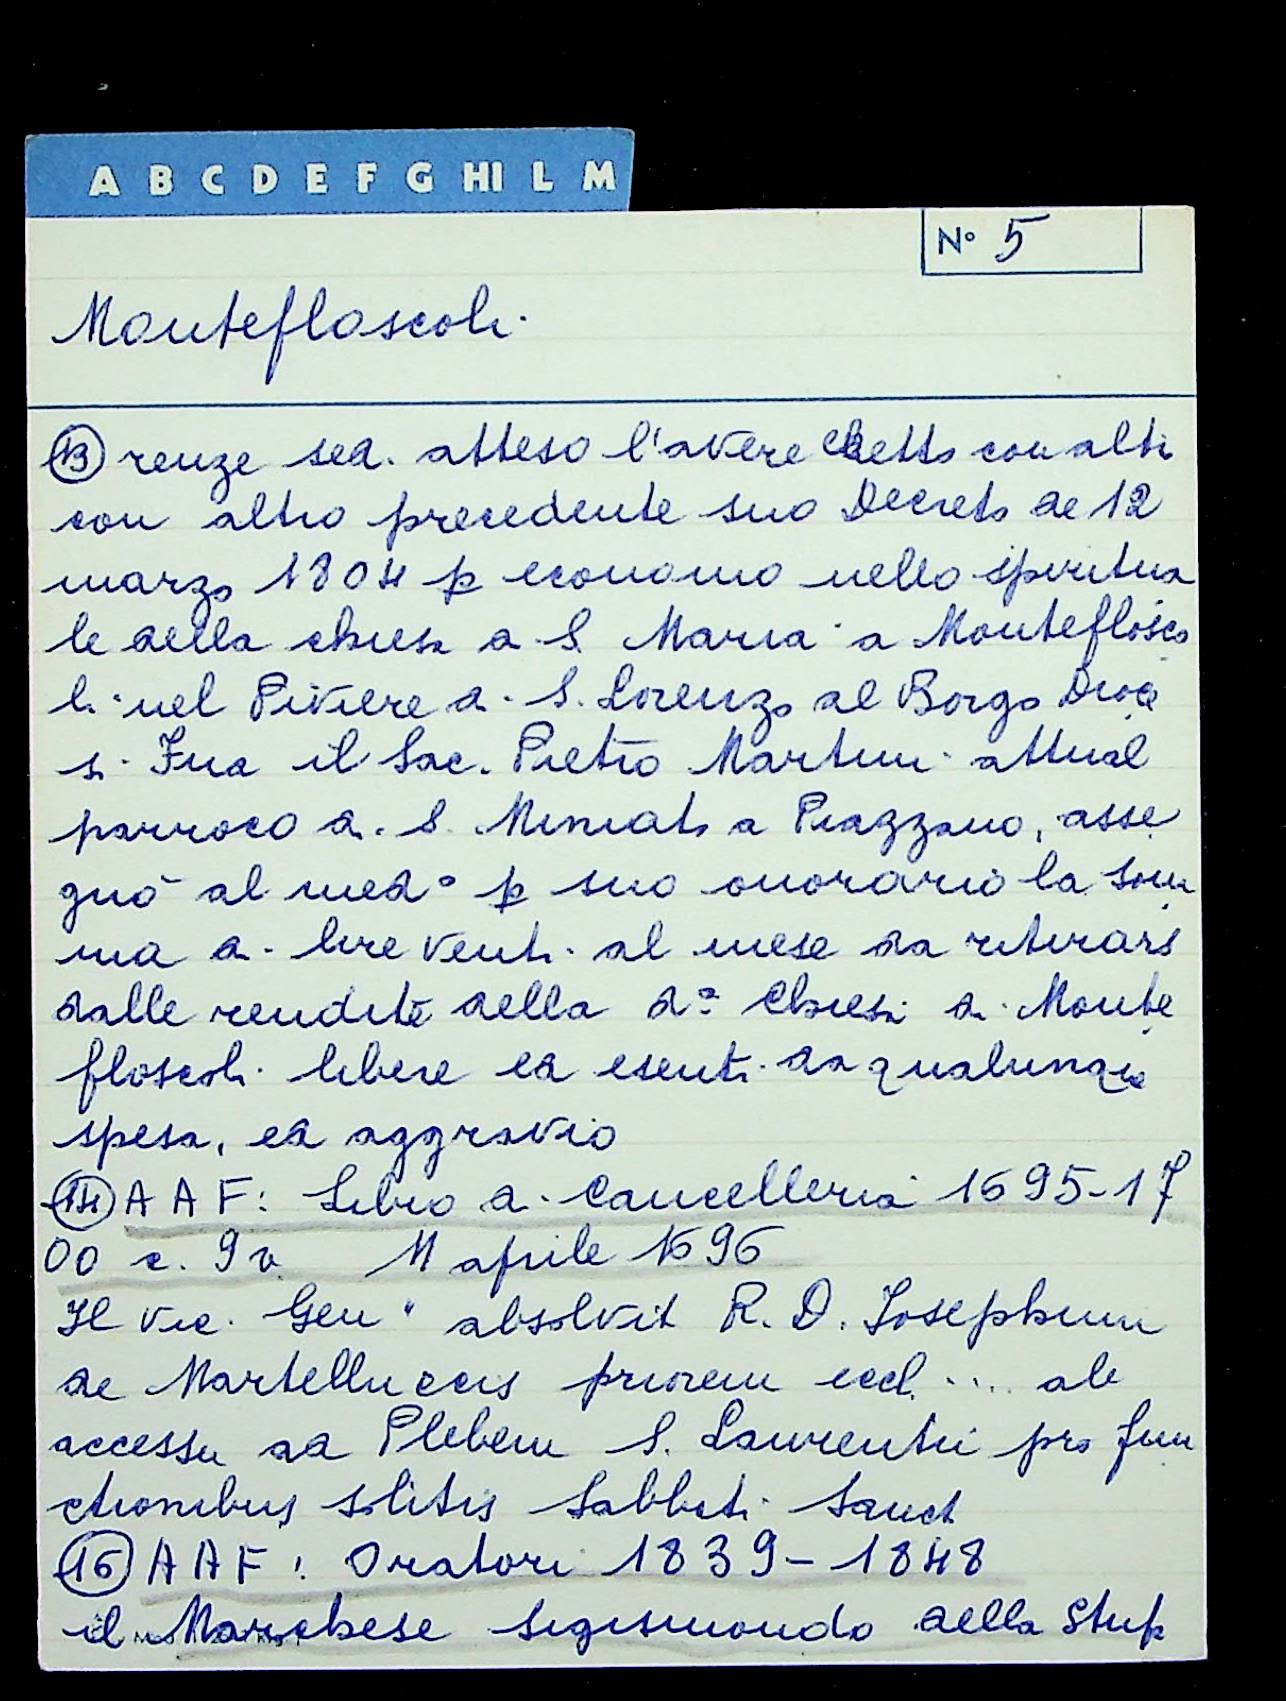 A B C D E F G HI L M
N° 5
Montefloscoli.
13 renze sed. atteso l'avere eletto con altr
con altro precedente suo Decreto de 12
marzo 1804 p economo nello spiritua
le della chiesa di S Maria a Montefiosco
li nel Piviere di S. Lorenzo al Borgo Dioce
si Fna il Sac. Pietro Martini attual
parroco di S. Miniato a Piazzano, asse
gnò al med° p suo onorario la som
ma di lire venti al mese da ritirars
dalle rendite della da Chiesa di Monte
floscoli libere ed esenti da qualunque
spesa, ed aggravio
14 A A F: Libro di Cancelleria 1695-17
00 c. 9v 11 aprile 1696
Il Vic. Gen. absolvit R. D. Josephum
de Martelluccis priorem eccl .... ab
accessu ad Plebem S. Laurentii pro fun
ctionibus solitis Sabbati Sanct
A A F: Oratori 1839-1848
il Marchese Sigismondo della Stuf